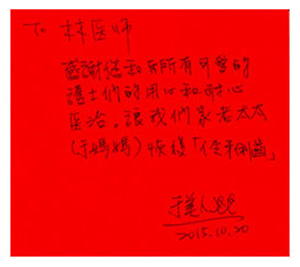 To 林医师
感謝您和所有可愛的
護士們的用心和耐心
医治，讓我們家老太太
(于媽媽)恢復「
2015.10.20